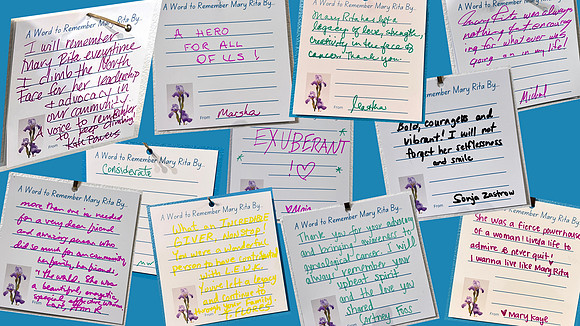 A Word to Remember Mary Rita By...
I will remember
Mary Rita everytime
I climb the North
Face for her leadership
+ advocacy in
our community
voice to remember
to keep climbing
Kate Powers
From
A Word to Remember Mary Rita By...
A HERO
FOR ALL
OF US!
From Marsha
Mary Rita has left a
legacy of love, strength,
creativity in the face of
cancer. Thank you.
From
Mary Rita was always
nothing but encourag
ing for what ever was
going on in my life!
From
A Word to Remember Mary Rita By...
Considerate
EXUBERANT
!♡
From
A Word to Remember Mary Rita By...
Bold, courageous and
vibrant! I will not
forget her selflessness
and smile
From Sonja Zastrow
A Word to Remember Mary Rita By...
more than one is needed
for a very dear friend
and amazing person who
did so much for our community,
her family, her friends
& the world. She was
a beautiful, energetic,
special, effective woman
From
A Word to Remember Mary Rita By...
What an INCREDIBLE
GIVER NONSTOP!
You were a wonderful
person to have contributed
with L.E.W.K.
You left a legacy
and continue to
through your family.
From T. FLORES
A Word to Remember Mary Rita By...
Thank you for your advocacy
and bringing awareness to
gynecological cancer. I will
always remember your
upbeat spirit
and the love you
shared
From Cortney Foos
A Word to Remember Mary Rita By...
She was a fierce powerhouse
of a woman! Lived a life to
admire & never quit!
I wanna live like Mary Rita
From ♡ Mary Kaye